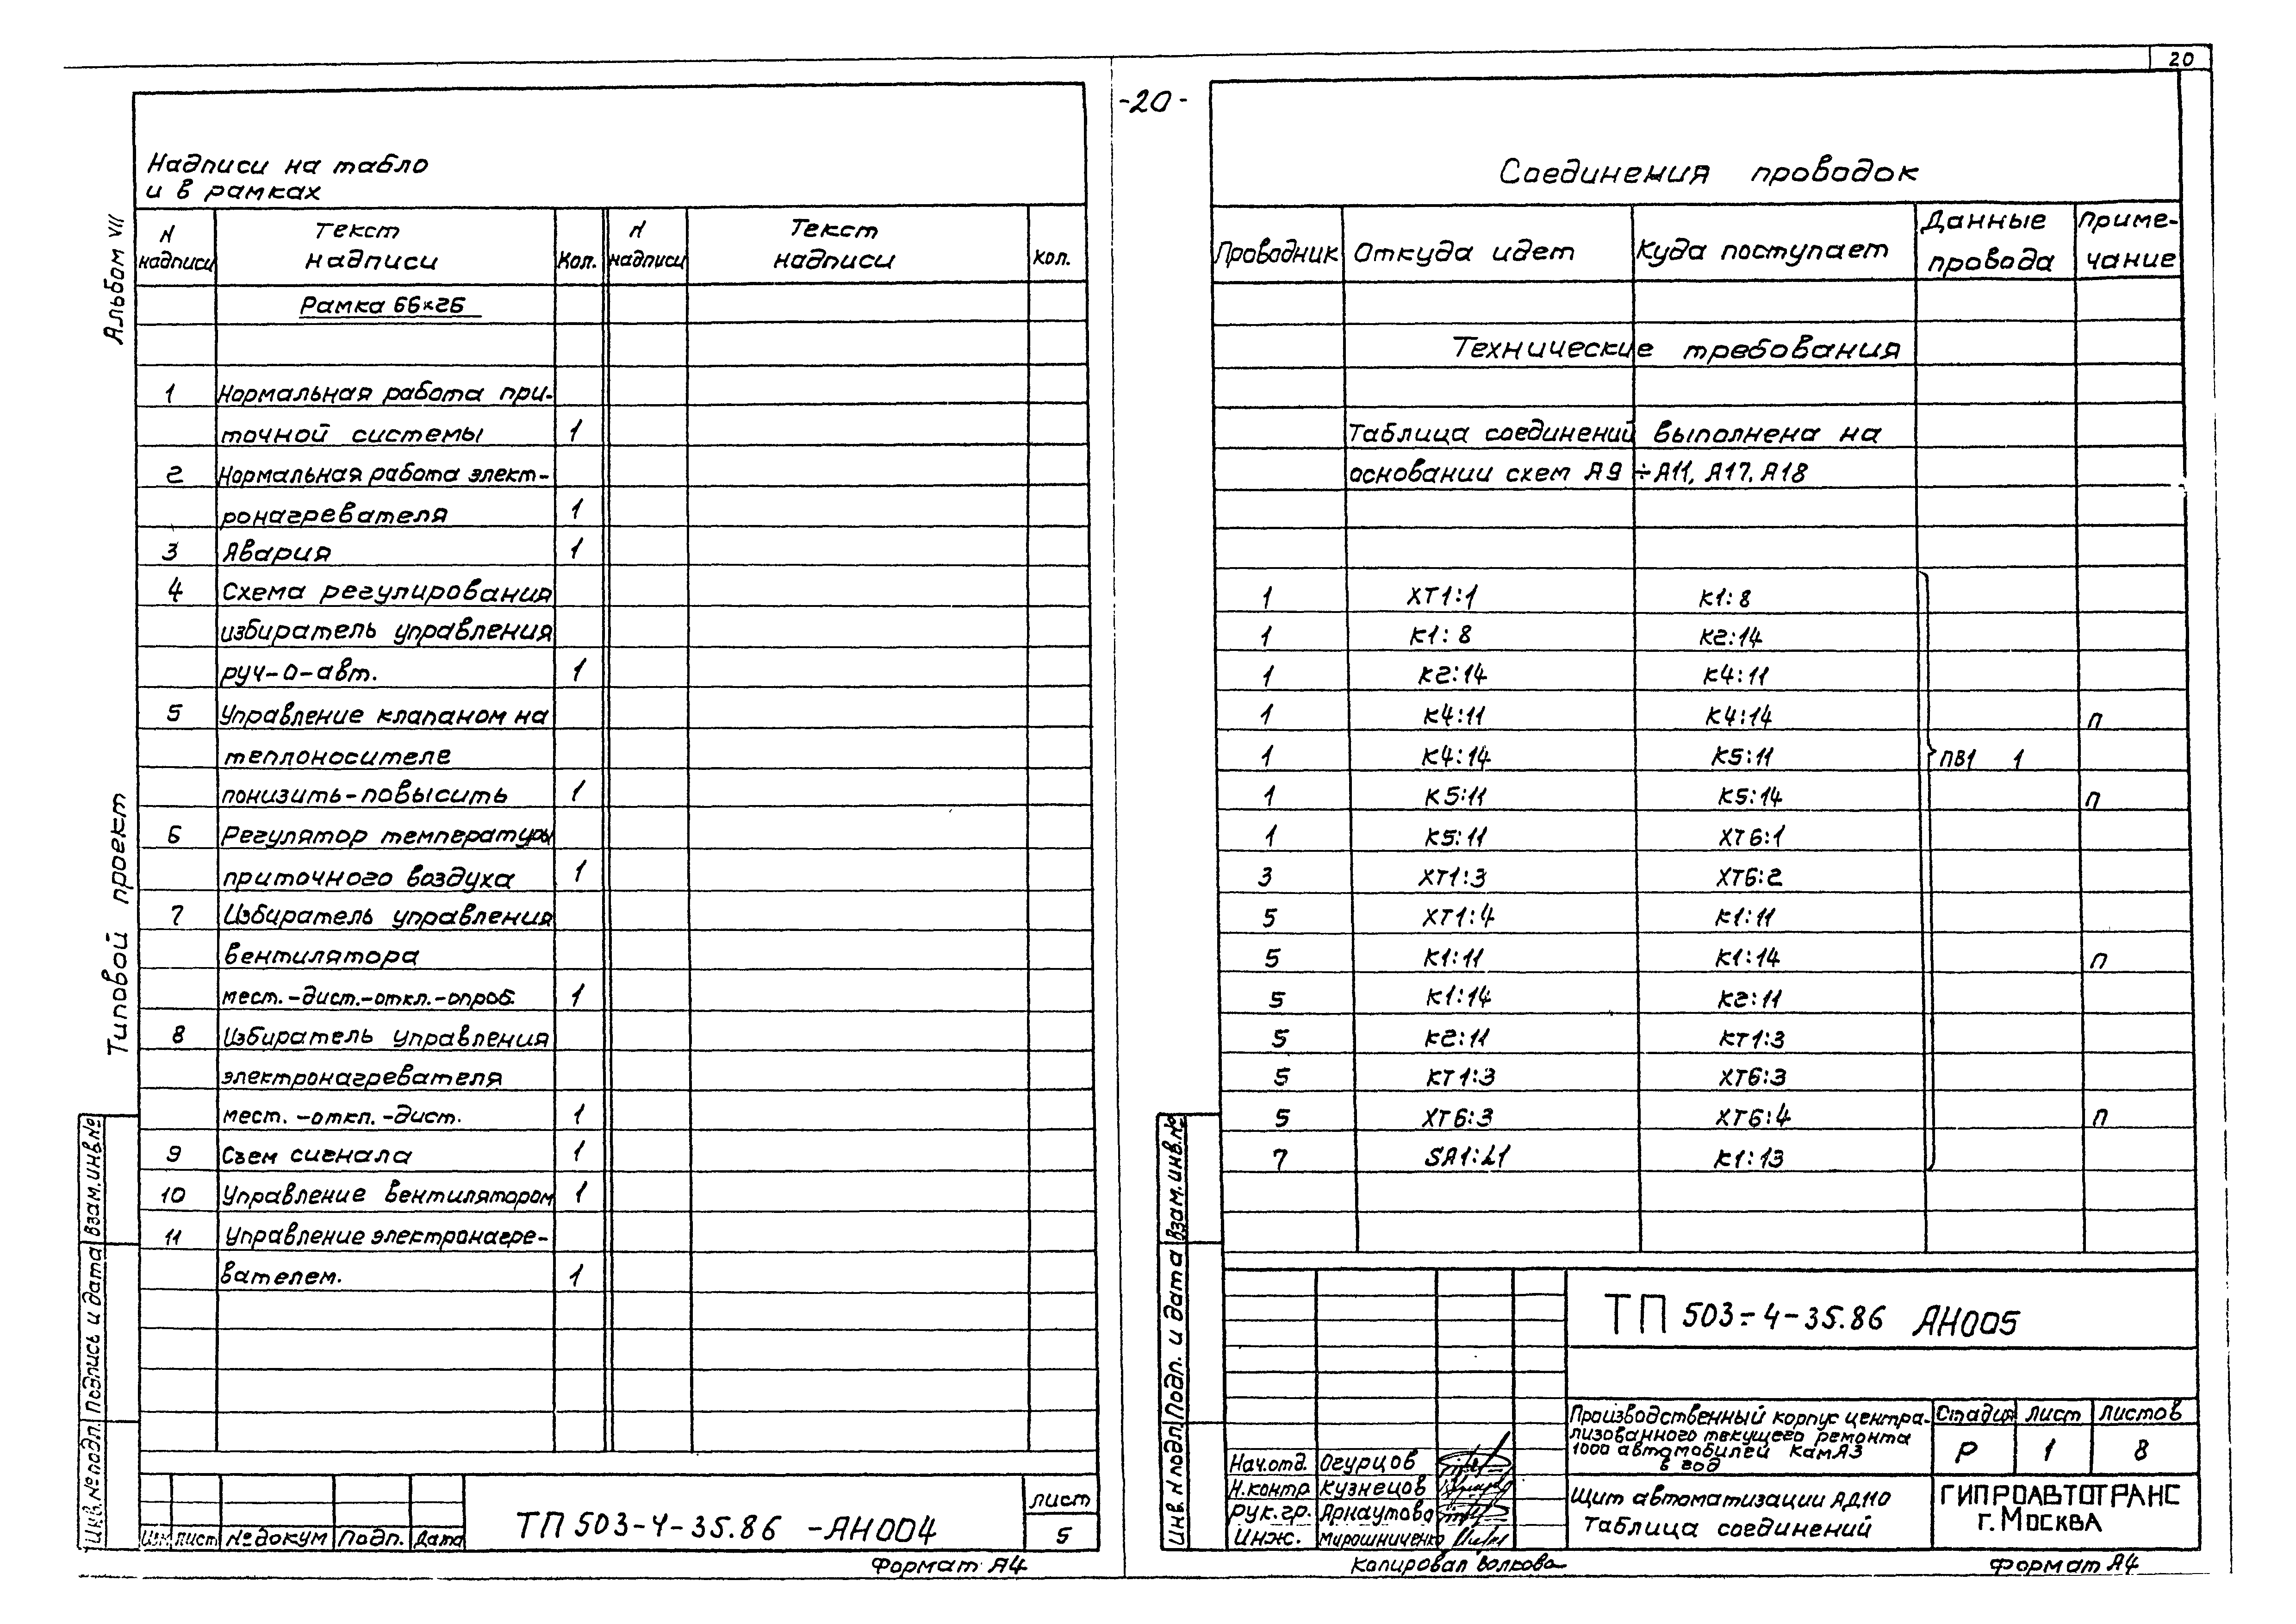 20
-20-
Альбом VII
Типовой проект
Надписи на табло
и в рамках
N надписи | Текст надписи | Кол. | N надписи | Текст надписи | кол.
Рамка 66×26
1 Нормальная работа при-
точной системы 1
2 Нормальная работа элект-
ронагревателя 1
3 Авария 1
4 Схема регулирования
избиратель управления
руч-о-авт. 1
5 Управление клапаном на
теплоносителе
понизить-повысить 1
6 Регулятор температуры
приточного воздуха 1
7 Избиратель управления
вентилятора
мест.-дист.-откл.-опроб. 1
8 Избиратель управления
электронагревателя
мест.-откл.-дист. 1
9 Съем сигнала 1
10 Управление вентилятором 1
11 Управление электронагре-
вателем. 1
Инв.№подл. Подпись и дата Взам.инв.№
Изм лист №докум Подп. Дата
ТП 503-4-35.86 -АН004
лист
5
Формат А4
Соединения проводок
Проводник | Откуда идет | Куда поступает | Данные провода | Приме-чание
Технические требования
Таблица соединений выполнена на
основании схем А9÷А11, А17, А18
1 ХТ1:1 К1:8
1 К1:8 К2:14
1 К2:14 К4:11
1 К4:11 К4:14 п
1 К4:14 К5:11 ПВ1 1
1 К5:11 К5:14 п
1 К5:11 ХТ6:1
3 ХТ1:3 ХТ6:2
5 ХТ1:4 К1:11
5 К1:11 К1:14 п
5 К1:14 К2:11
5 К2:11 КТ1:3
5 КТ1:3 ХТ6:3
5 ХТ6:3 ХТ6:4 п
7 SA1:L1 К1:13
Инв.N подл Подп. и дата Взам.инв.№
ТП 503-4-35.86 АН005
Производственный корпус центра-
лизованного текущего ремонта
1000 автомобилей КамАЗ
в год
Стадия лист листов
Р 1 8
Нач.отд. Огурцов
Н.контр Кузнецов
Рук.гр. Арнаутова
Инж. Мирошниченко
Щит автоматизации АД110
Таблица соединений
ГИПРОАВТОТРАНС
г.Москва
Копировал Волкова
Формат А4